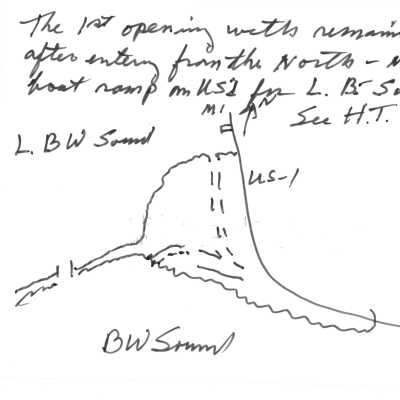 The 1st opening with remain
after entering from the North -
boat ramp on US1 for L. B. So
M1 N
See H.T.
L. BW Sound
US-1
BW Sound